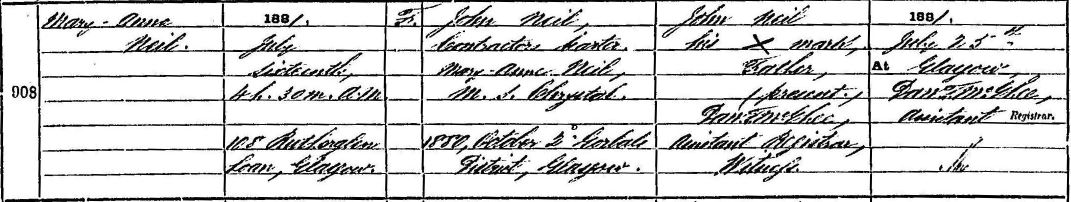 908
Mary-Anne
Neil.
1881.
July
Sixteenth,
4h. 30m. A.M.
108 Rutherglen
Loan, Glasgow.
F.
John Neil,
Contractors Carter.
Mary-Anne Neil,
M. S. Chrystal.
1880, October 2d Gorbals
District, Glasgow.
John Neil
his X mark,
Father,
(present.)
Danl McGhee,
Assistant Registrar,
Witness.
1881.
July 25th
At Glasgow,
Danl McGhee,
Assistant Registrar.